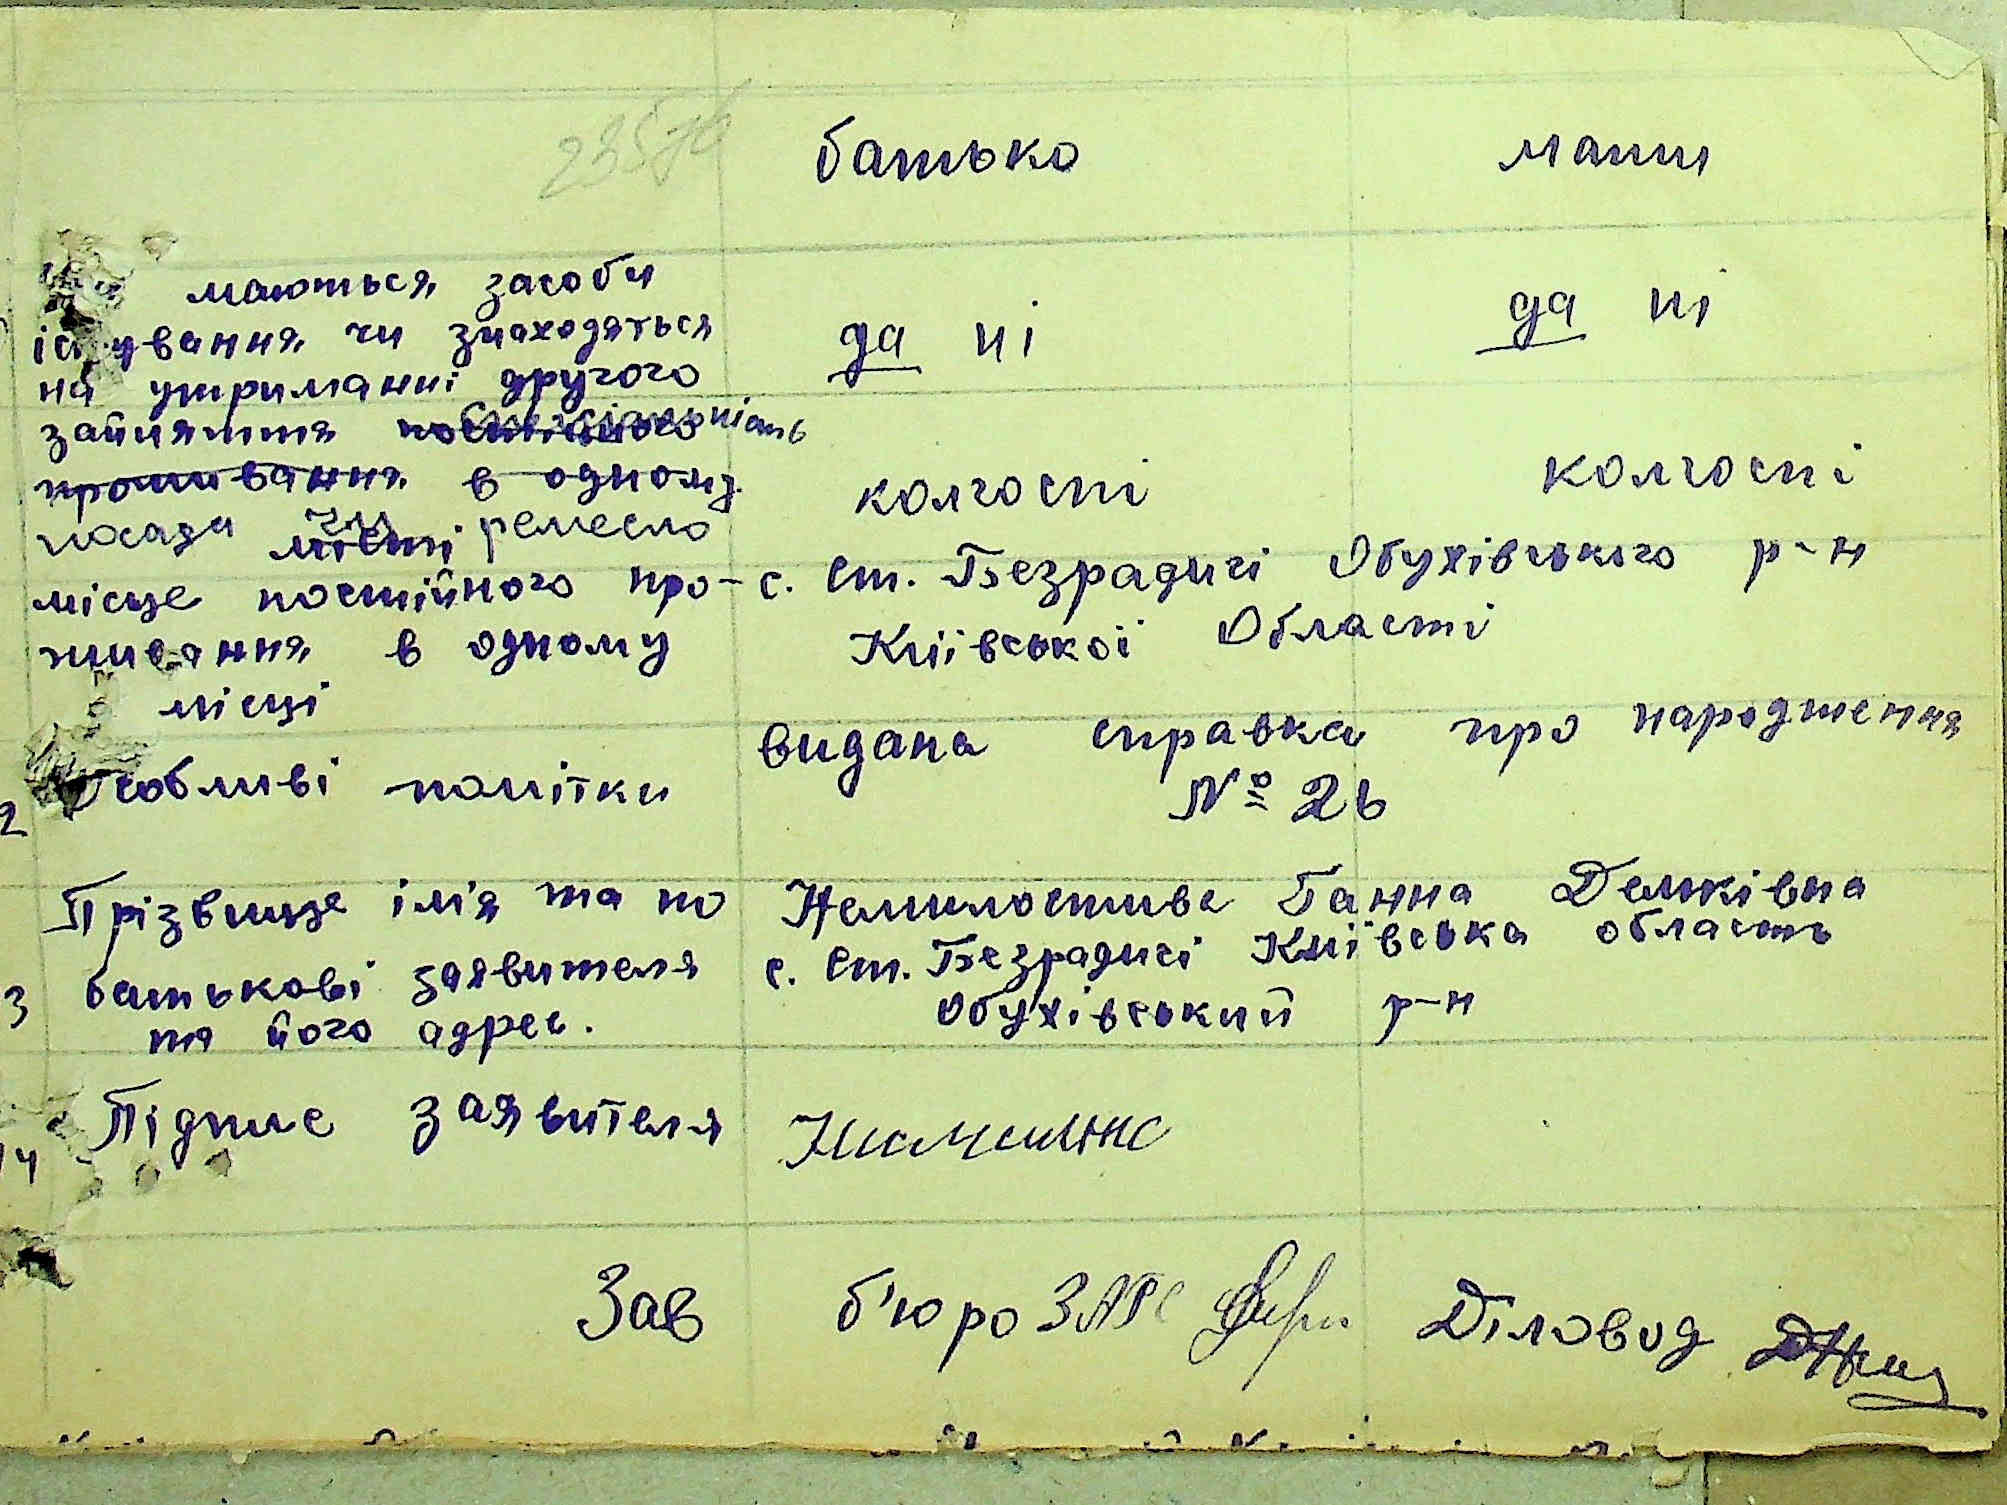 батько мати
маються засоби
існування чи знаходяться да ні да ні
на утриманні другого
зайняття спеціальність
проживання в одному колгоспі колгоспі
посада чи ремесло
місце постійного про- с. Ст. Безрадичі Обухівського р-н
живання в одному Київської Області
місці
видана справка про народження
2 Особливі помітки № 26
Прізвище ім'я та по Немилостиве Ганна Демківна
3 батькові заявителя с. Ст. Безрадичі Київська область
та його адрес. Обухівський р-н
14 Підпис заявителя
Зав б'юро ЗАГС Діловод